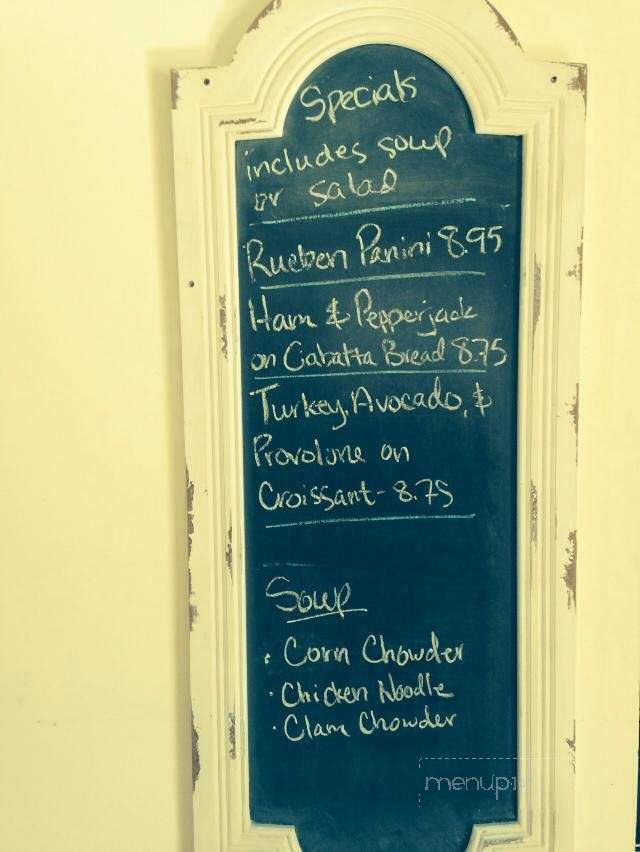 Specials
includes soup
or salad
Rueben Panini 8.95
Ham & Pepperjack
on Cabatta Bread 8.75
Turkey, Avocado, &
Provolone on
Croissant - 8.75
Soup
· Corn Chowder
· Chicken Noodle
· Clam Chowder
menupix